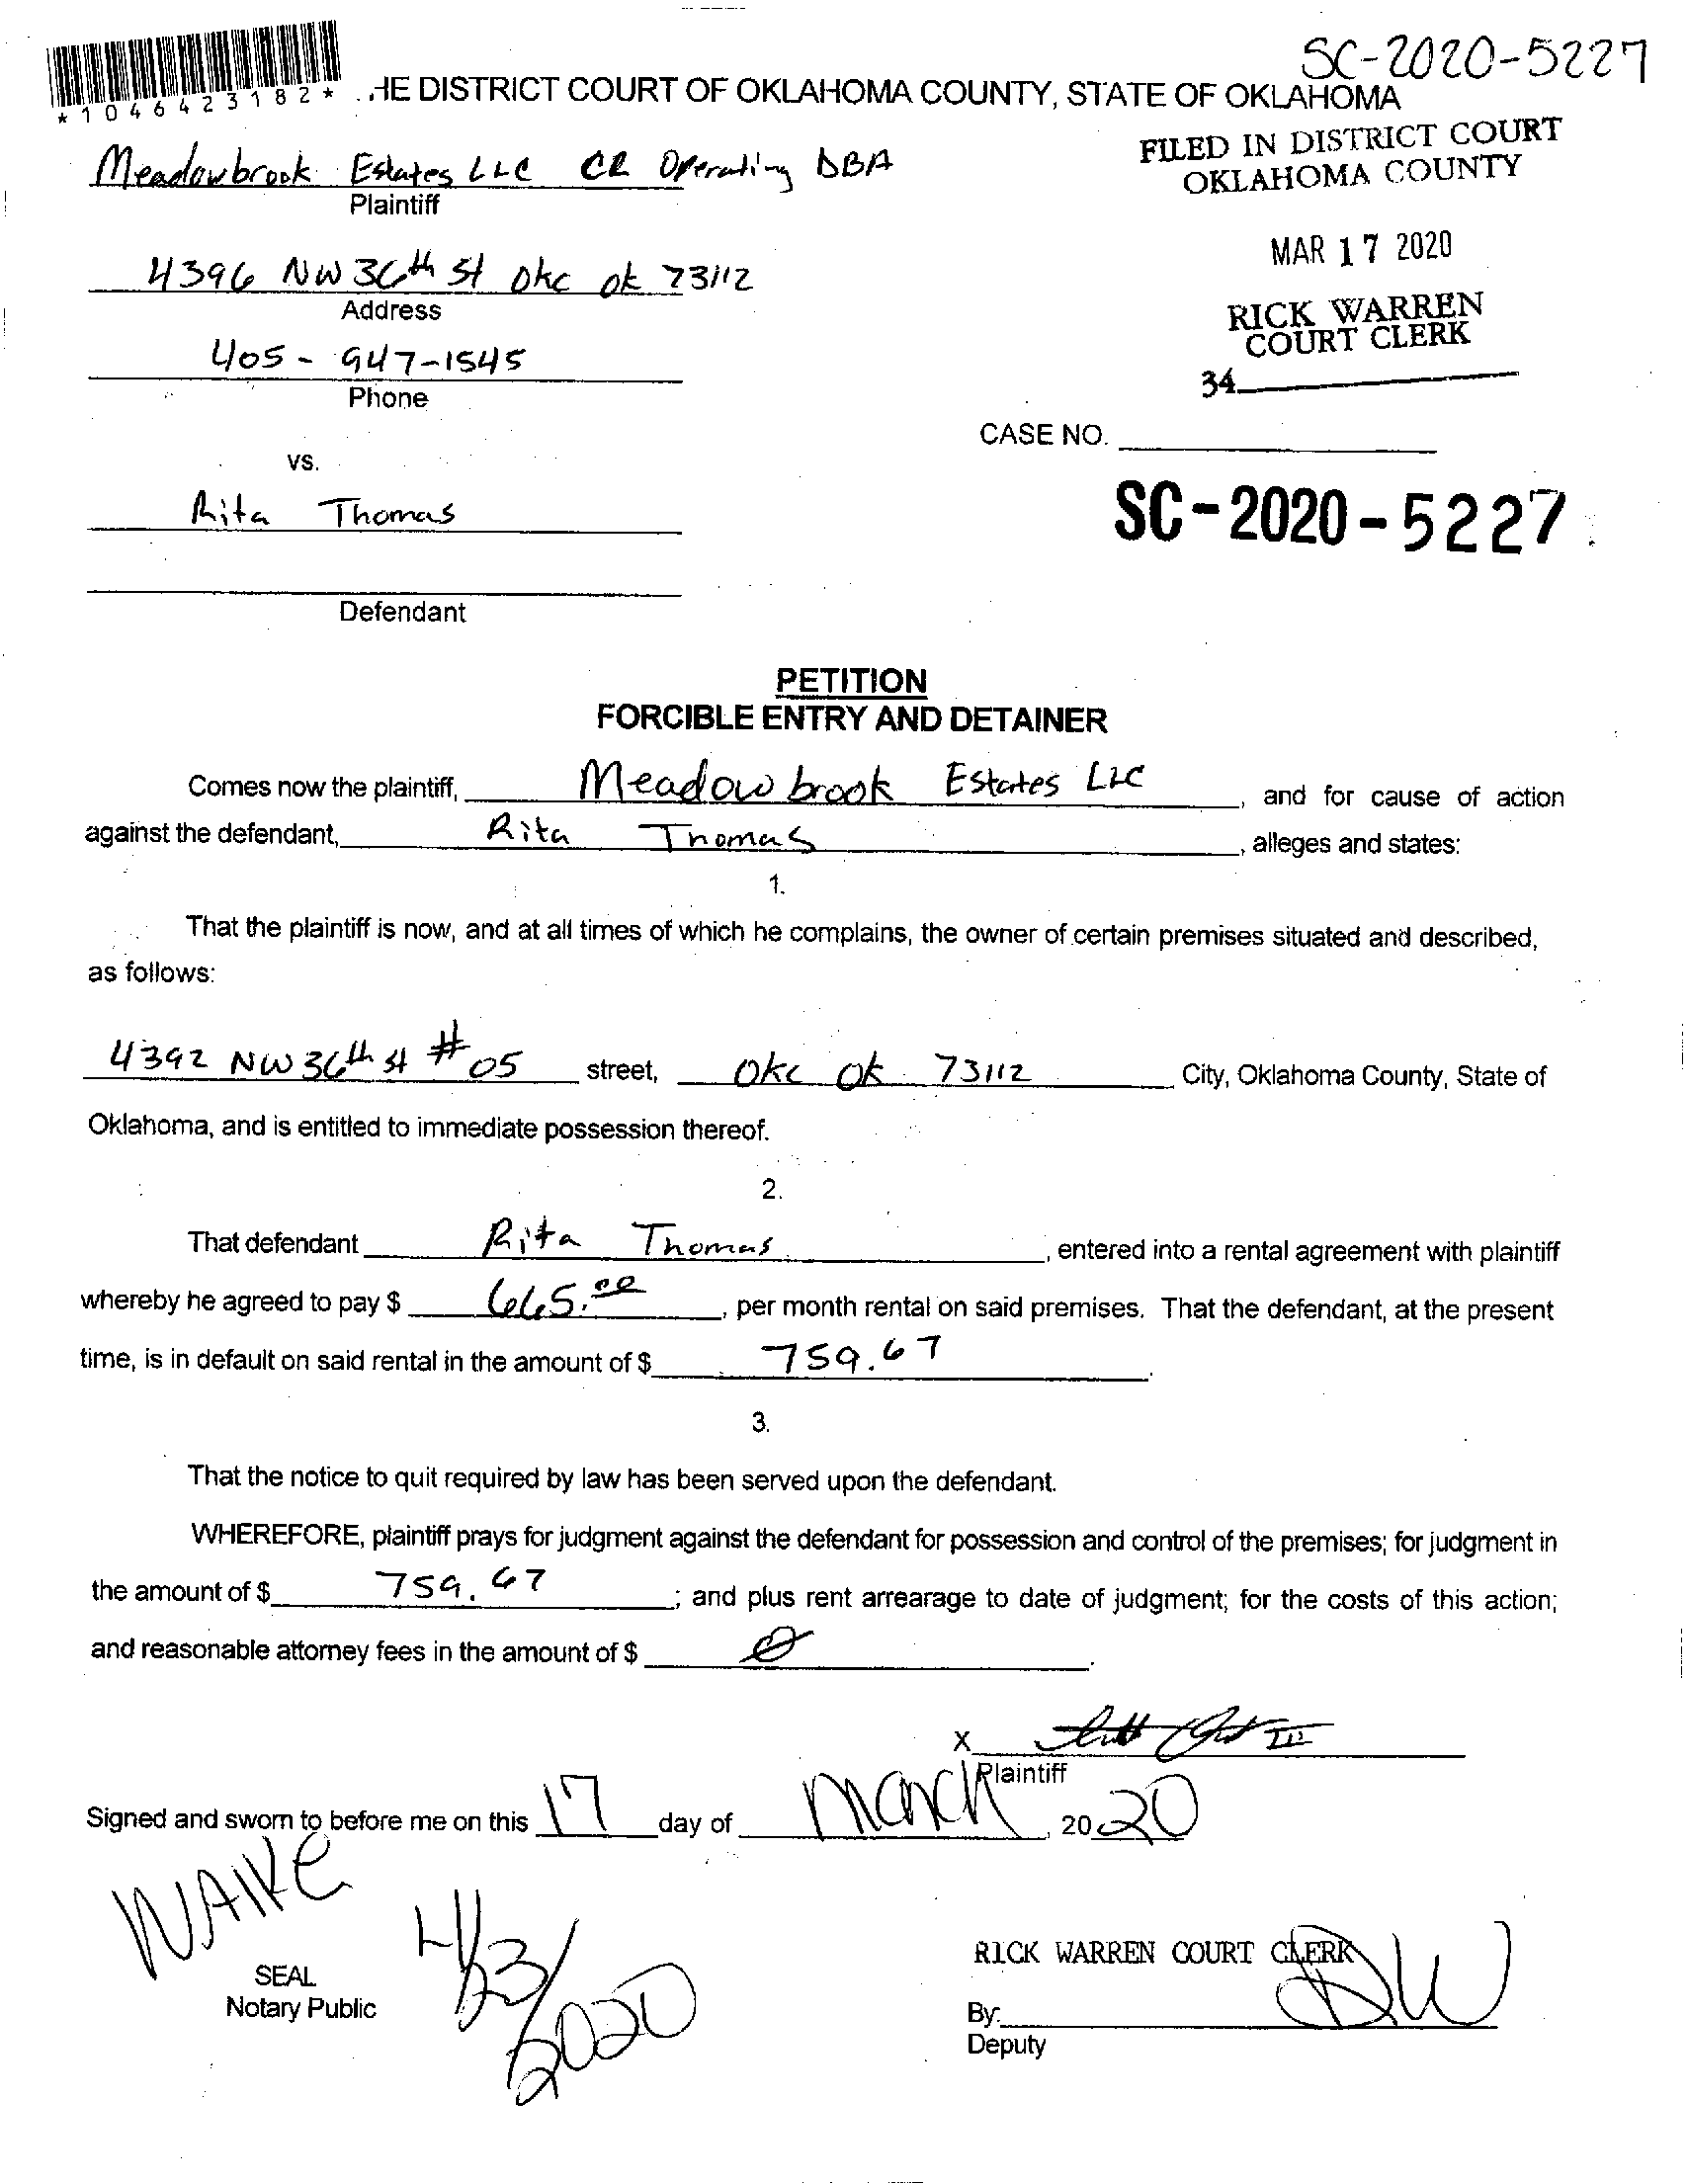 SC-2020-5227
*1046423182* HE DISTRICT COURT OF OKLAHOMA COUNTY, STATE OF OKLAHOMA
FILED IN DISTRICT COURT
OKLAHOMA COUNTY
Meadowbrook Estates LLC CR Operating DBA
Plaintiff
MAR 17 2020
4396 NW 36th St Okc ok 73112
Address
RICK WARREN
COURT CLERK
405 - 947-1545
Phone
34
CASE NO.
vs.
Rita Thomas
SC-2020-5227
Defendant
PETITION
FORCIBLE ENTRY AND DETAINER
Comes now the plaintiff, Meadowbrook Estates LLC, and for cause of action
against the defendant, Rita Thomas, alleges and states:
1.
That the plaintiff is now, and at all times of which he complains, the owner of certain premises situated and described,
as follows:
4392 NW 36th st #05 street, Okc Ok 73112 City, Oklahoma County, State of
Oklahoma, and is entitled to immediate possession thereof.
2.
That defendant Rita Thomas, entered into a rental agreement with plaintiff
whereby he agreed to pay $ 665.00, per month rental on said premises. That the defendant, at the present
time, is in default on said rental in the amount of $ 759.67.
3.
That the notice to quit required by law has been served upon the defendant.
WHEREFORE, plaintiff prays for judgment against the defendant for possession and control of the premises; for judgment in
the amount of $ 759.67; and plus rent arrearage to date of judgment; for the costs of this action;
and reasonable attorney fees in the amount of $ 0.
X III
Plaintiff
Signed and sworn to before me on this 17 day of March, 2020
WAIVE
4/3/2020
SEAL
Notary Public
RICK WARREN COURT CLERK
By: DW
Deputy